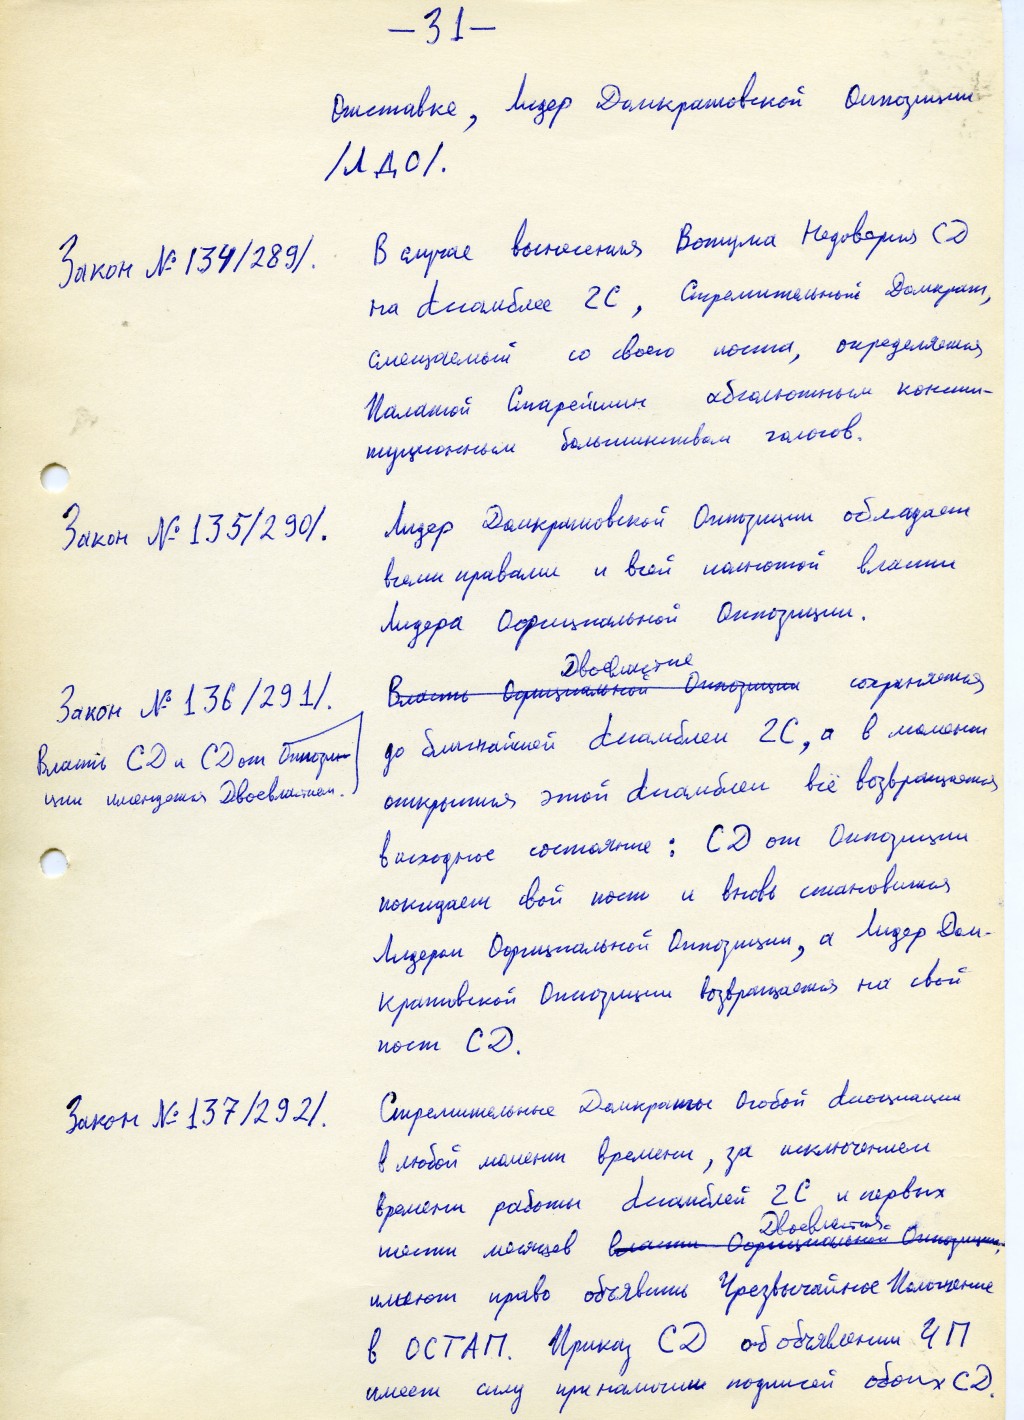 —31—
Отставке, Лидер Домкратовской Оппозиции
/ЛДО/.
Закон № 134/289/.
В случае вынесения Вотума Недоверия СД
на Ассамблее 2С, Стремительный Домкрат,
смещаемый со своего поста, определяется
Палатой Старейшин абсолютным консти-
туционным большинством голосов.
Закон № 135/290/.
Лидер Домкратовской Оппозиции обладает
всеми правами и всей полнотой власти
Лидера Официальной Оппозиции.
Закон № 136/291/.
Власть СД и СД от Оппози-
ции именуется Двоевластием.
Двоевластие
Власть Официальной Оппозиции сохраняется
до ближайшей Ассамблеи 2С, а в момент
открытия этой Ассамблеи всё возвращается
в исходное состояние: СД от Оппозиции
покидает свой пост и вновь становится
Лидером Официальной Оппозиции, а Лидер Дом-
кратовской Оппозиции возвращается на свой
пост СД.
Закон № 137/292/.
Стремительные Домкраты Особой Ассоциации
в любой момент времени, за исключением
времени работы Ассамблей 2С и первых
шести месяцев Двоевластия
власти Официальной Оппозиции,
имеют право объявить Чрезвычайное Положение
в ОСТАП. Приказ СД об объявлении ЧП
имеет силу при наличии подписей обоих СД.